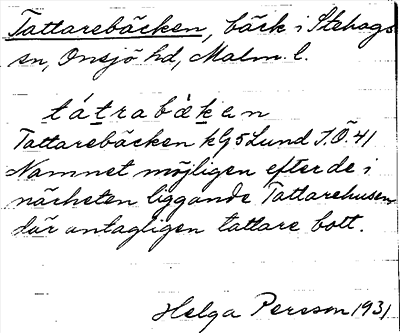 Tattarebäcken, bäck i Stehags
sn, Onsjö hd, Malm. l.
tátrabèkən
Tattarebäcken kG5 Lund S.Ö. 41
Namnet möjligen efter de i
närheten liggande Tattarehusen
där antagligen tattare bott.
Helga Persson 1931